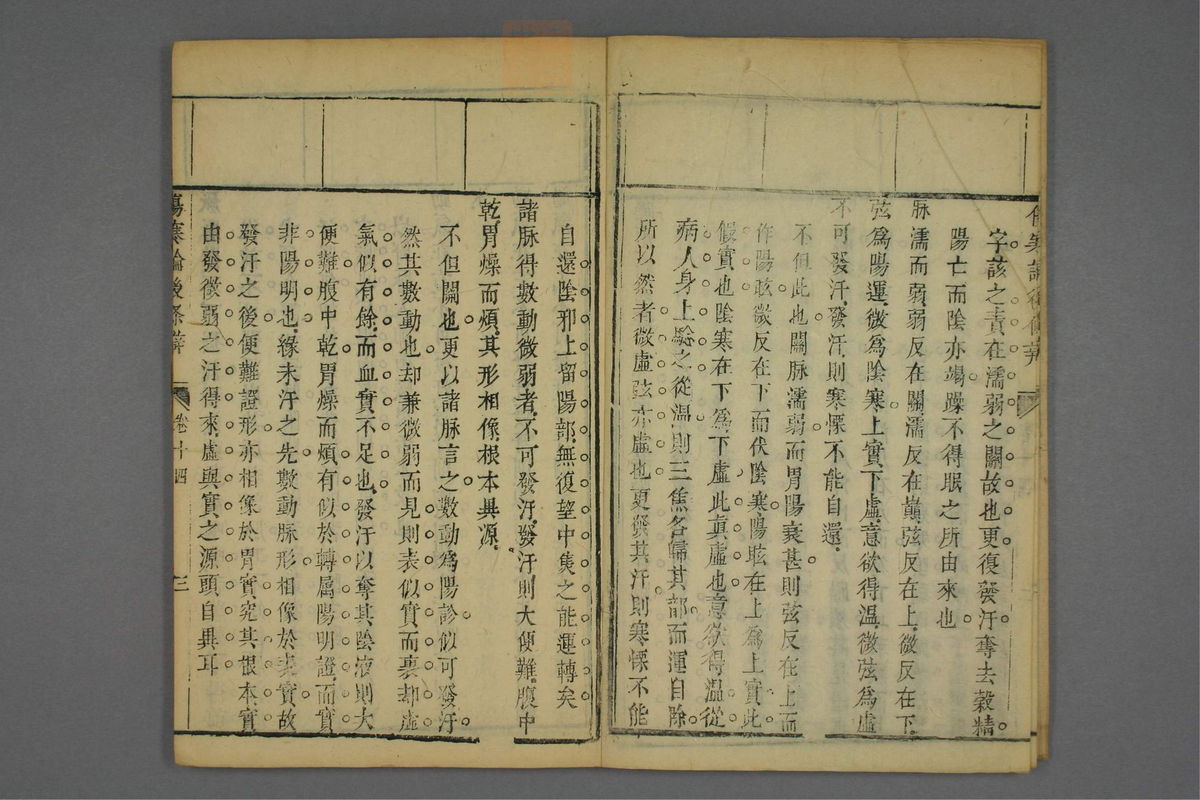 字該之責在濡弱之關故也更復發汗奪去穀精
陽亡而陰亦竭躁不得眠之所由來也
脉濡而弱弱反在關濡反在巔弦反在上微反在下
弦爲陽運微爲陰寒上實下虛意欲得溫微弦爲虛
不可發汗發汗則寒慄不能自還
不但此也關脉濡弱而胃陽衰甚則弦反在上而
作陽眩微反在下而伏陰寒陽眩在上爲上實此
假實也陰寒在下爲下虛此眞虛也意欲得溫從
病人身上驗之從溫則三焦各歸其部而運自除
所以然者微虛弦亦虛也更發其汗則寒慄不能
自還陰邪上留陽部無復望中焦之能運轉矣
諸脉得數動微弱者不可發汗發汗則大便難腹中
乾胃燥而煩其形相像根本異源
不但關也更以諸脉言之數動爲陽診似可發汗
然其數動也却兼微弱而見則表似實而裏却虛
氣似有餘而血實不足也發汗以奪其陰液則大
便難腹中乾胃燥而煩有似於轉属陽明證而實
非陽明也緣未汗之先數動脉形相像於表實故
發汗之後便難證形亦相像於胃實究其根本實
由發微弱之汗得來虛與實之源頭自異耳
傷寒論後條辨 卷十四 三